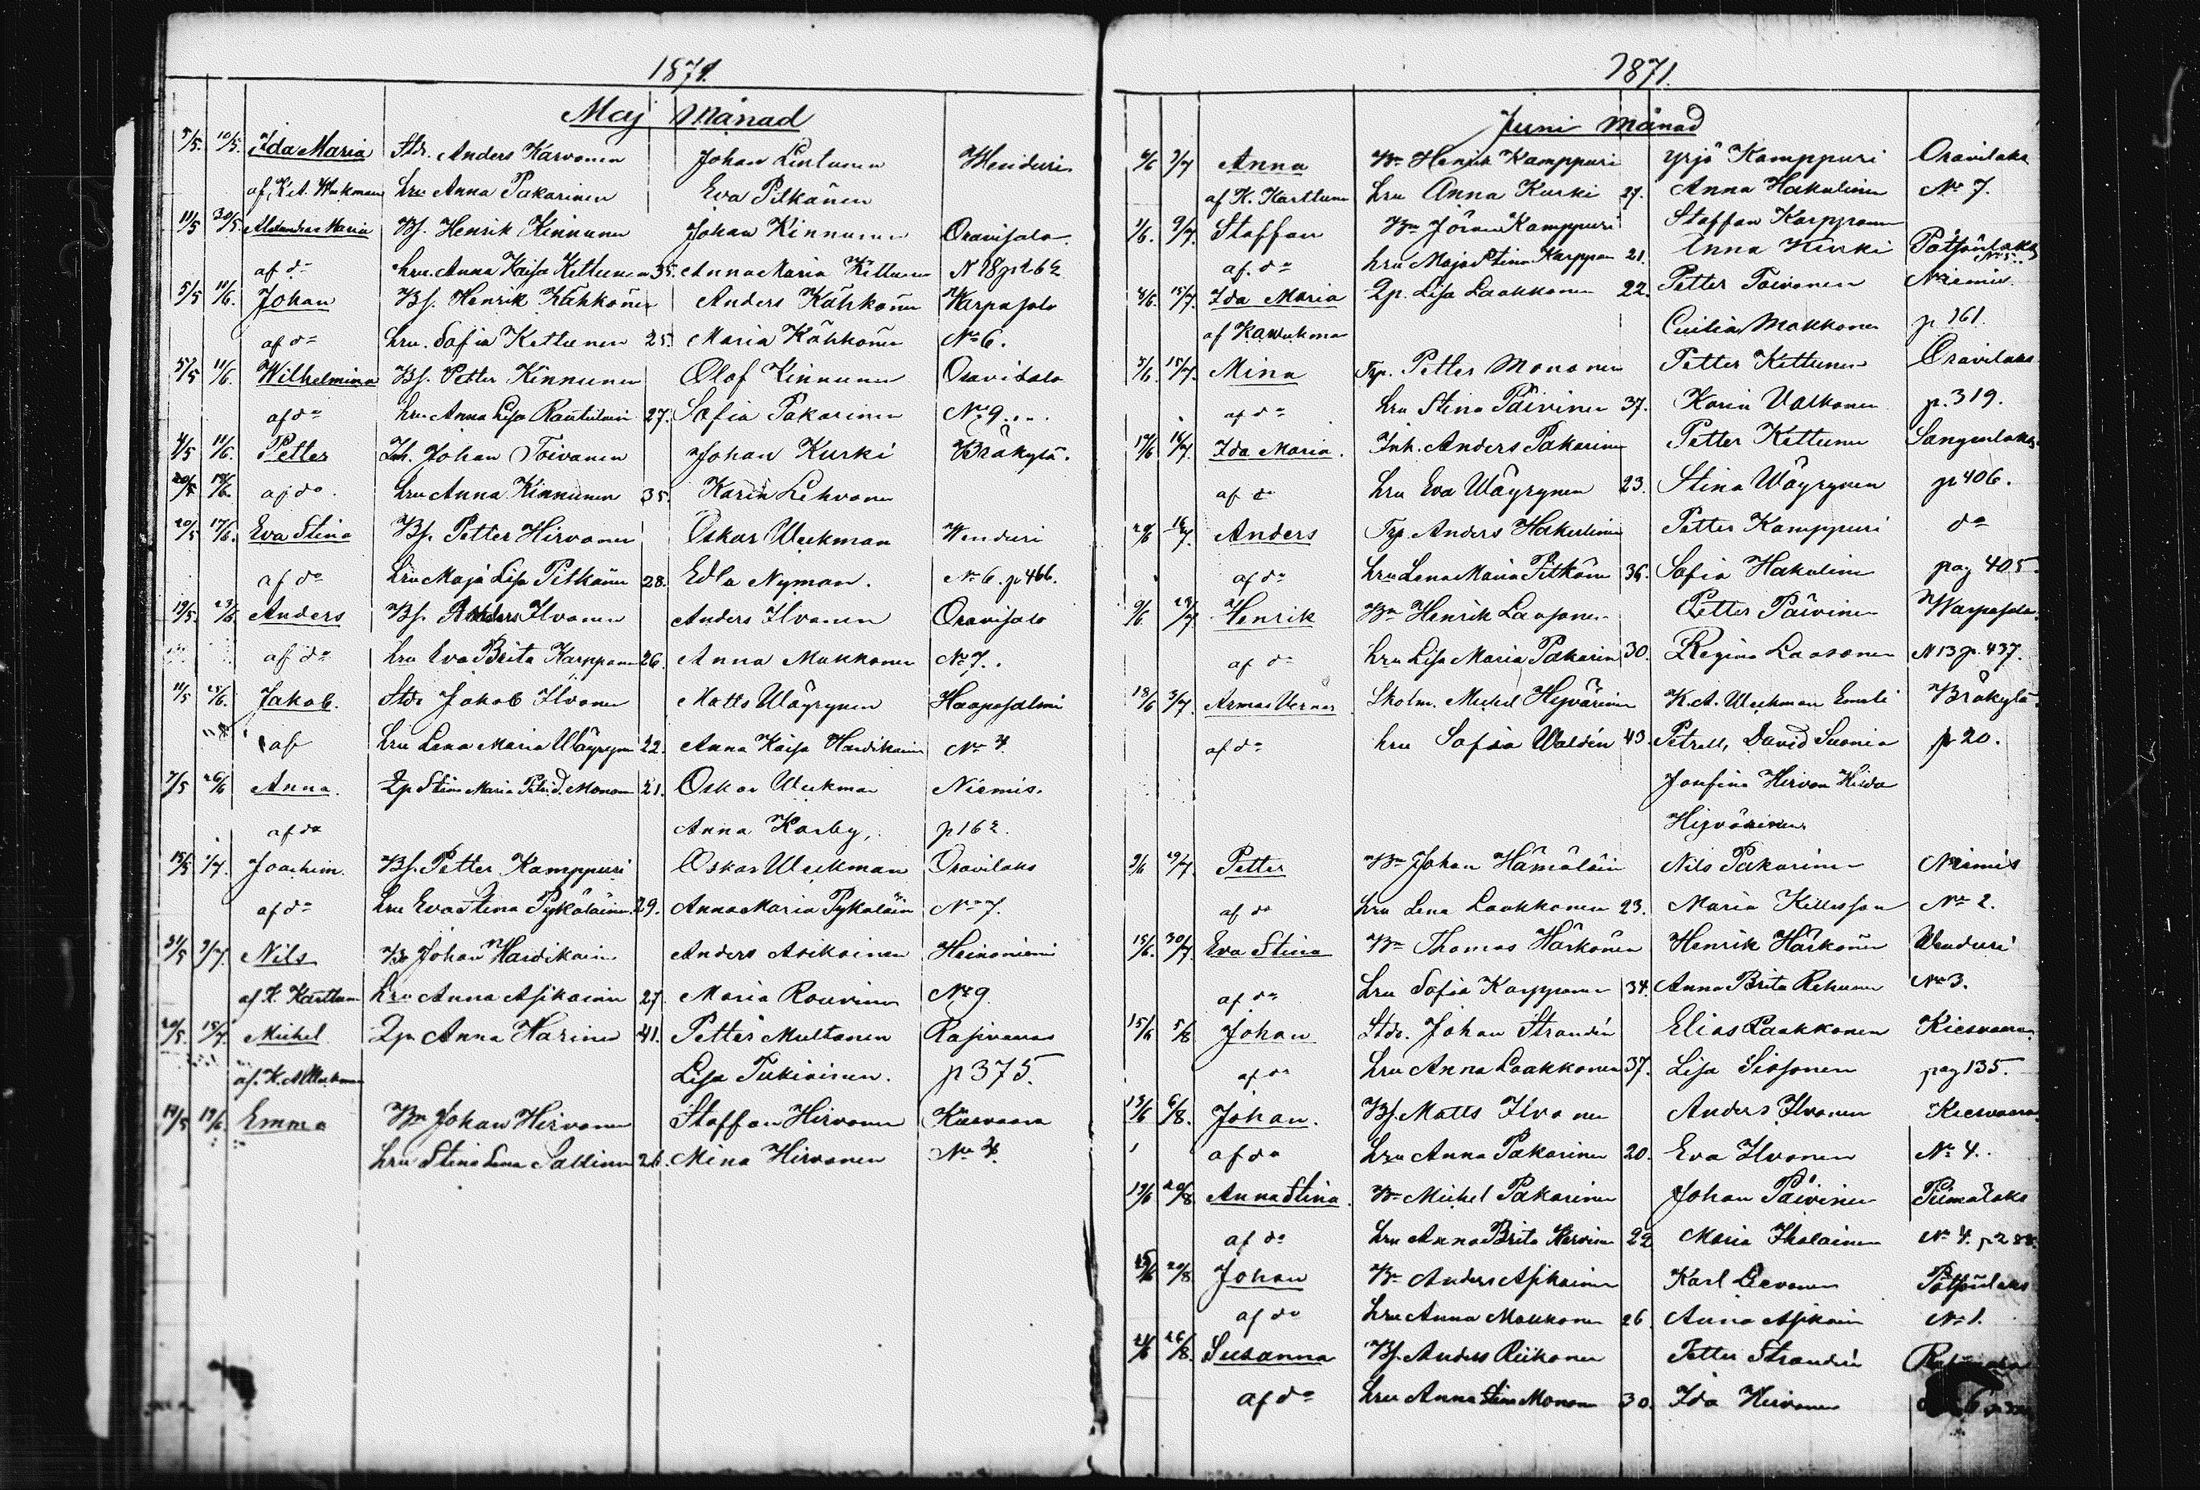 1871.
Maj Månad
5/5. 10/5. Ida Maria Std. Anders Karvonen Johan Lintunen Wenduri
af K.A. Weckman hru Anna Pakarinen Eva Pitkänen
11/5 30/5. Alexandra Maria Bf. Henrik Kinnunen Johan Kinnunen Oravisalo.
af do hru. Anna Kaisa Kettunen 35. Anna Maria Kettunen N 18 p 262
5/5 11/6. Johan Bf. Henrik Kähkönen Anders Kähkönen Warpasalo
af do hru. Sofia Kettunen 25. Maria Kähkönen No 6.
11/6. Wilhelmina Bf. Petter Kinnunen Olof Kinnunen Oravisalo
af do hru Anna Lisa Rautiainen 27. Sofia Pakarinen No 9.
4/5 11/6. Petter Inh. Johan Toivanen Johan Kurki Bråkylä.
af do. hru Anna Kinnunen 35. Karin Lehvonen
20/5 17/6. Eva Stina Bf. Petter Hirvonen Oskar Weckman Wenduri
af do hru Maja Lisa Pitkänen 28. Edla Nyman. No 6. p 466.
19/5. 23/6 Anders Bf. Anders Ilvonen Anders Ilvonen Oravisalo
af do hru Eva Brita Karppanen 26. Anna Makkonen No 7.
11/5 25/6. Jakob. Std. Jakob Ilvonen Matts Wäyrynen Haapasalmi
af hru Lena Maria Wäyrynen 22. Anna Kaisa Hardikainen No 4.
7/5 26/6 Anna. Qp Stina Maria Petri D. Mononen 21. Oskar Weckman Niemis.
af do Anna Karby, p 162.
15/5 1/7. Joachim. Bf. Petter Kamppuri Oskar Weckman Oravilaks
af do hru Eva Stina Pykäläinen 29. Anna Maria Pykäläinen No 7.
31/5 2/7. Nils Bo Johan Hardikainen Anders Asikainen Heinoniemi
af K. Karttunen hru Anna Asikainen 27. Maria Rouvinen No 9
20/5. 15/7. Michel Qp Anna Harinen 41. Petter Multanen Rasivaara
af. K.A Weckman Lisa Tukiainen. p 375.
14/5 19/6. Emma Bn Johan Hirvonen Staffan Hirvonen Kiesvaara
hru Stina Lena Sallinen 26. Mina Hirvonen No 4.
1871.
Juni Månad
4/6 2/7 Anna Bn Henrik Kamppuri Yrjö Kamppuri Oravilaks
af K. Karttunen hru Anna Kurki 27. Anna Hakulinen No 7.
1/6. 9/7. Staffan Bn Jöran Kamppuri Staffan Karppanen
af. do hru Maja Stina Karppanen 21. Anna Kurki Pötsönlaks No 5.
4/6. 15/7. Ida Maria Qp. Lisa Laakkonen 22. Petter Toivonen Niemis
af KA Weckman Cecilia Makkonen p 161.
3/6 15/7. Mina Trp. Petter Mononen Petter Kettunen Oravilaks
af do hru Stina Päivinen 37. Karin Valkonen p. 319.
14/6 16/7. Ida Maria. Inh. Anders Pakarinen Petter Kettunen Sangenlaks
af do hru Eva Wäyrynen 23. Stina Wäyrynen p 406.
Anders Trp. Anders Hakulinen Petter Kamppuri do
af do hru Lena Maria Pitkänen 36. Sofia Hakulinen pag 405.
9/6 Henrik Bn Henrik Laasonen Petter Päivinen Warpasalo.
af do hru Lisa Maria Pakarinen 30. Regina Laasonen N 13 p. 437.
18/6 3/7. Armas Verner Skolm. Michel Hyvärinen K.A. Weckman Emeli Bråkylä
af do hru Sofia Waldén 43. Petrell, David Suonio p 20.
Josefina Hirvonen Hilda
Hyvärinen.
3/6 29/7. Petter Bn Johan Hämäläinen Nils Pakarinen Niemis
af do hru Lena Laakkonen 23. Maria Kilsson No 2.
15/6. 30/7. Eva Stina Bn Thomas Härkönen Henrik Härkönen Wenduri
af do hru Sofia Karppanen 34. Anna Brita Rehunen No 3.
15/6 5/8 Johan Std. Johan Strandén Elias Laakkonen Kiesvaara
af do hru Anna Laakkonen 37. Lisa Sissonen pag 135.
13/6 6/8. Johan. Bf. Matts Ilvonen Anders Ilvonen Kiesvaara
af do hru Anna Pakarinen 20. Eva Ilvonen No 4.
19/6 20/8. Anna Stina. Bn Michel Pakarinen Johan Päivinen Piimälaks
af do hru Anna Brita Karvinen 22 Maria Ihalainen No 4. p 288.
20/8. Johan Bn Anders Asikainen Karl Leevonen Pötsönlaks
af do hru Anna Makkonen 26. Anna Asikain No 1.
26/8. Susanna Bf. Anders Riikonen Petter Strandén Rasivaara
af do hru Anna Stina Mononen 30. Ida Hirvonen